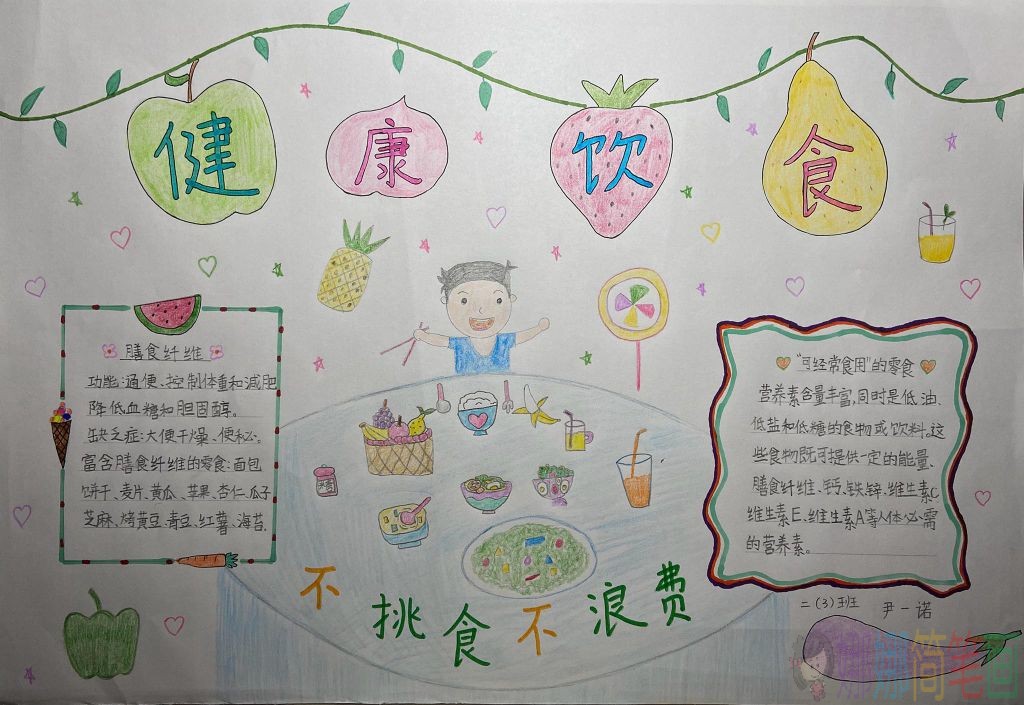 健康饮食
膳食纤维
功能:通便、控制体重和减肥
降低血糖和胆固醇。
缺乏症:大便干燥、便秘。
富含膳食纤维的零食:面包
饼干、麦片、黄瓜、苹果、杏仁、瓜子
芝麻、烤黄豆、青豆、红薯、海苔。
“可经常食用”的零食
营养素含量丰富,同时是低油、
低盐和低糖的食物或饮料。这
些食物既可提供一定的能量、
膳食纤维、钙、铁、锌、维生素C
维生素E、维生素A等人体必需
的营养素。
不挑食不浪费
二(3)班 尹一诺
简笔画